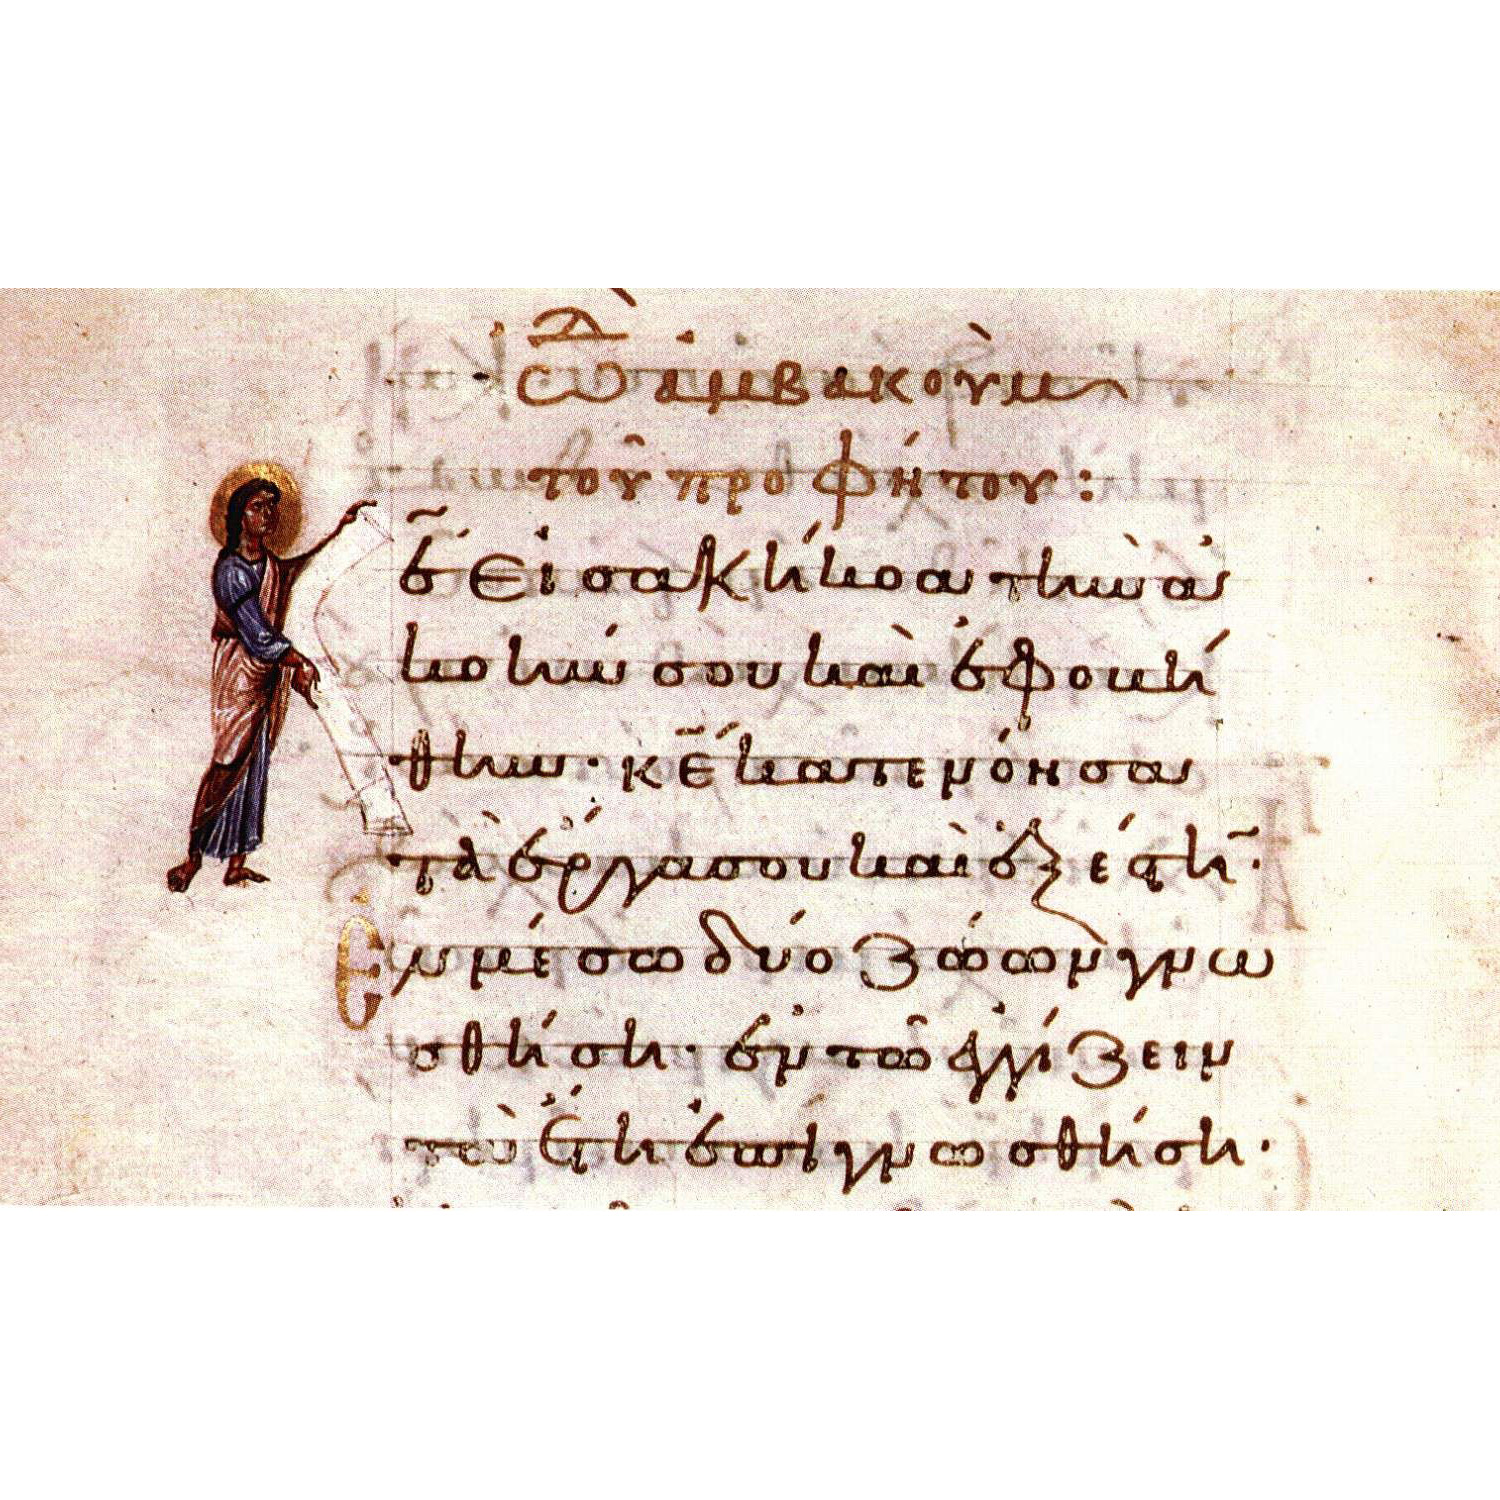 ᾠδ ἀμβακοὺμ
τοῦ προφήτου:
Κε̄ εἰσακήκοα τὴν ἀ
κοήν σου καὶ ἐφοβή
θην· κε̄ κατενόησα
τὰ ἔργα σου καὶ ἐξέστη̄·
Ἐν μέσω δύο ζώων γνω
σθήση· ἐν τῶ ἐγγίζειν
τὰ ἔτη ἐπιγνωσθήση·